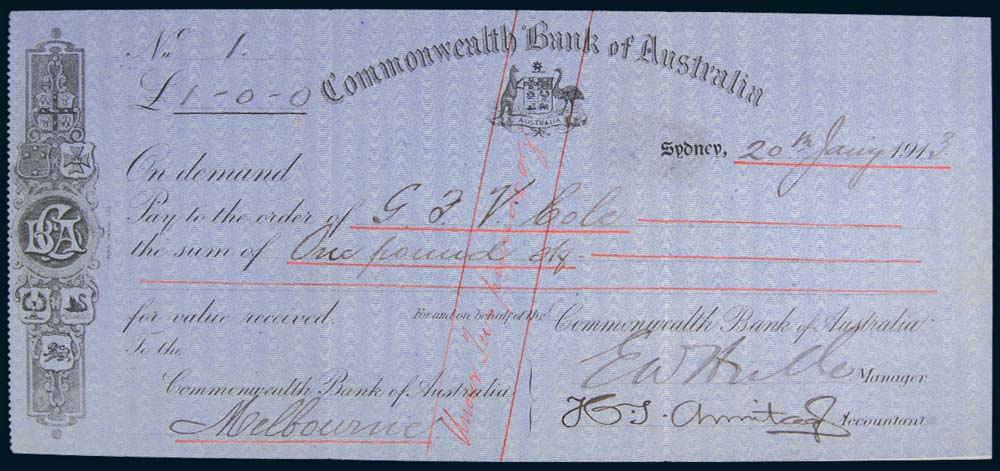 No. 1.
£1-0-0
Commonwealth Bank of Australia
AUSTRALIA
Sydney, 20th Jany 1913
On demand
Pay to the order of G. F. V. Cole
the sum of One pound stg
for value received.
For and on behalf of the Commonwealth Bank of Australia
To the
Commonwealth Bank of Australia
Manager
Melbourne
H. T. Armitage Accountant
Under Two pounds
CBA